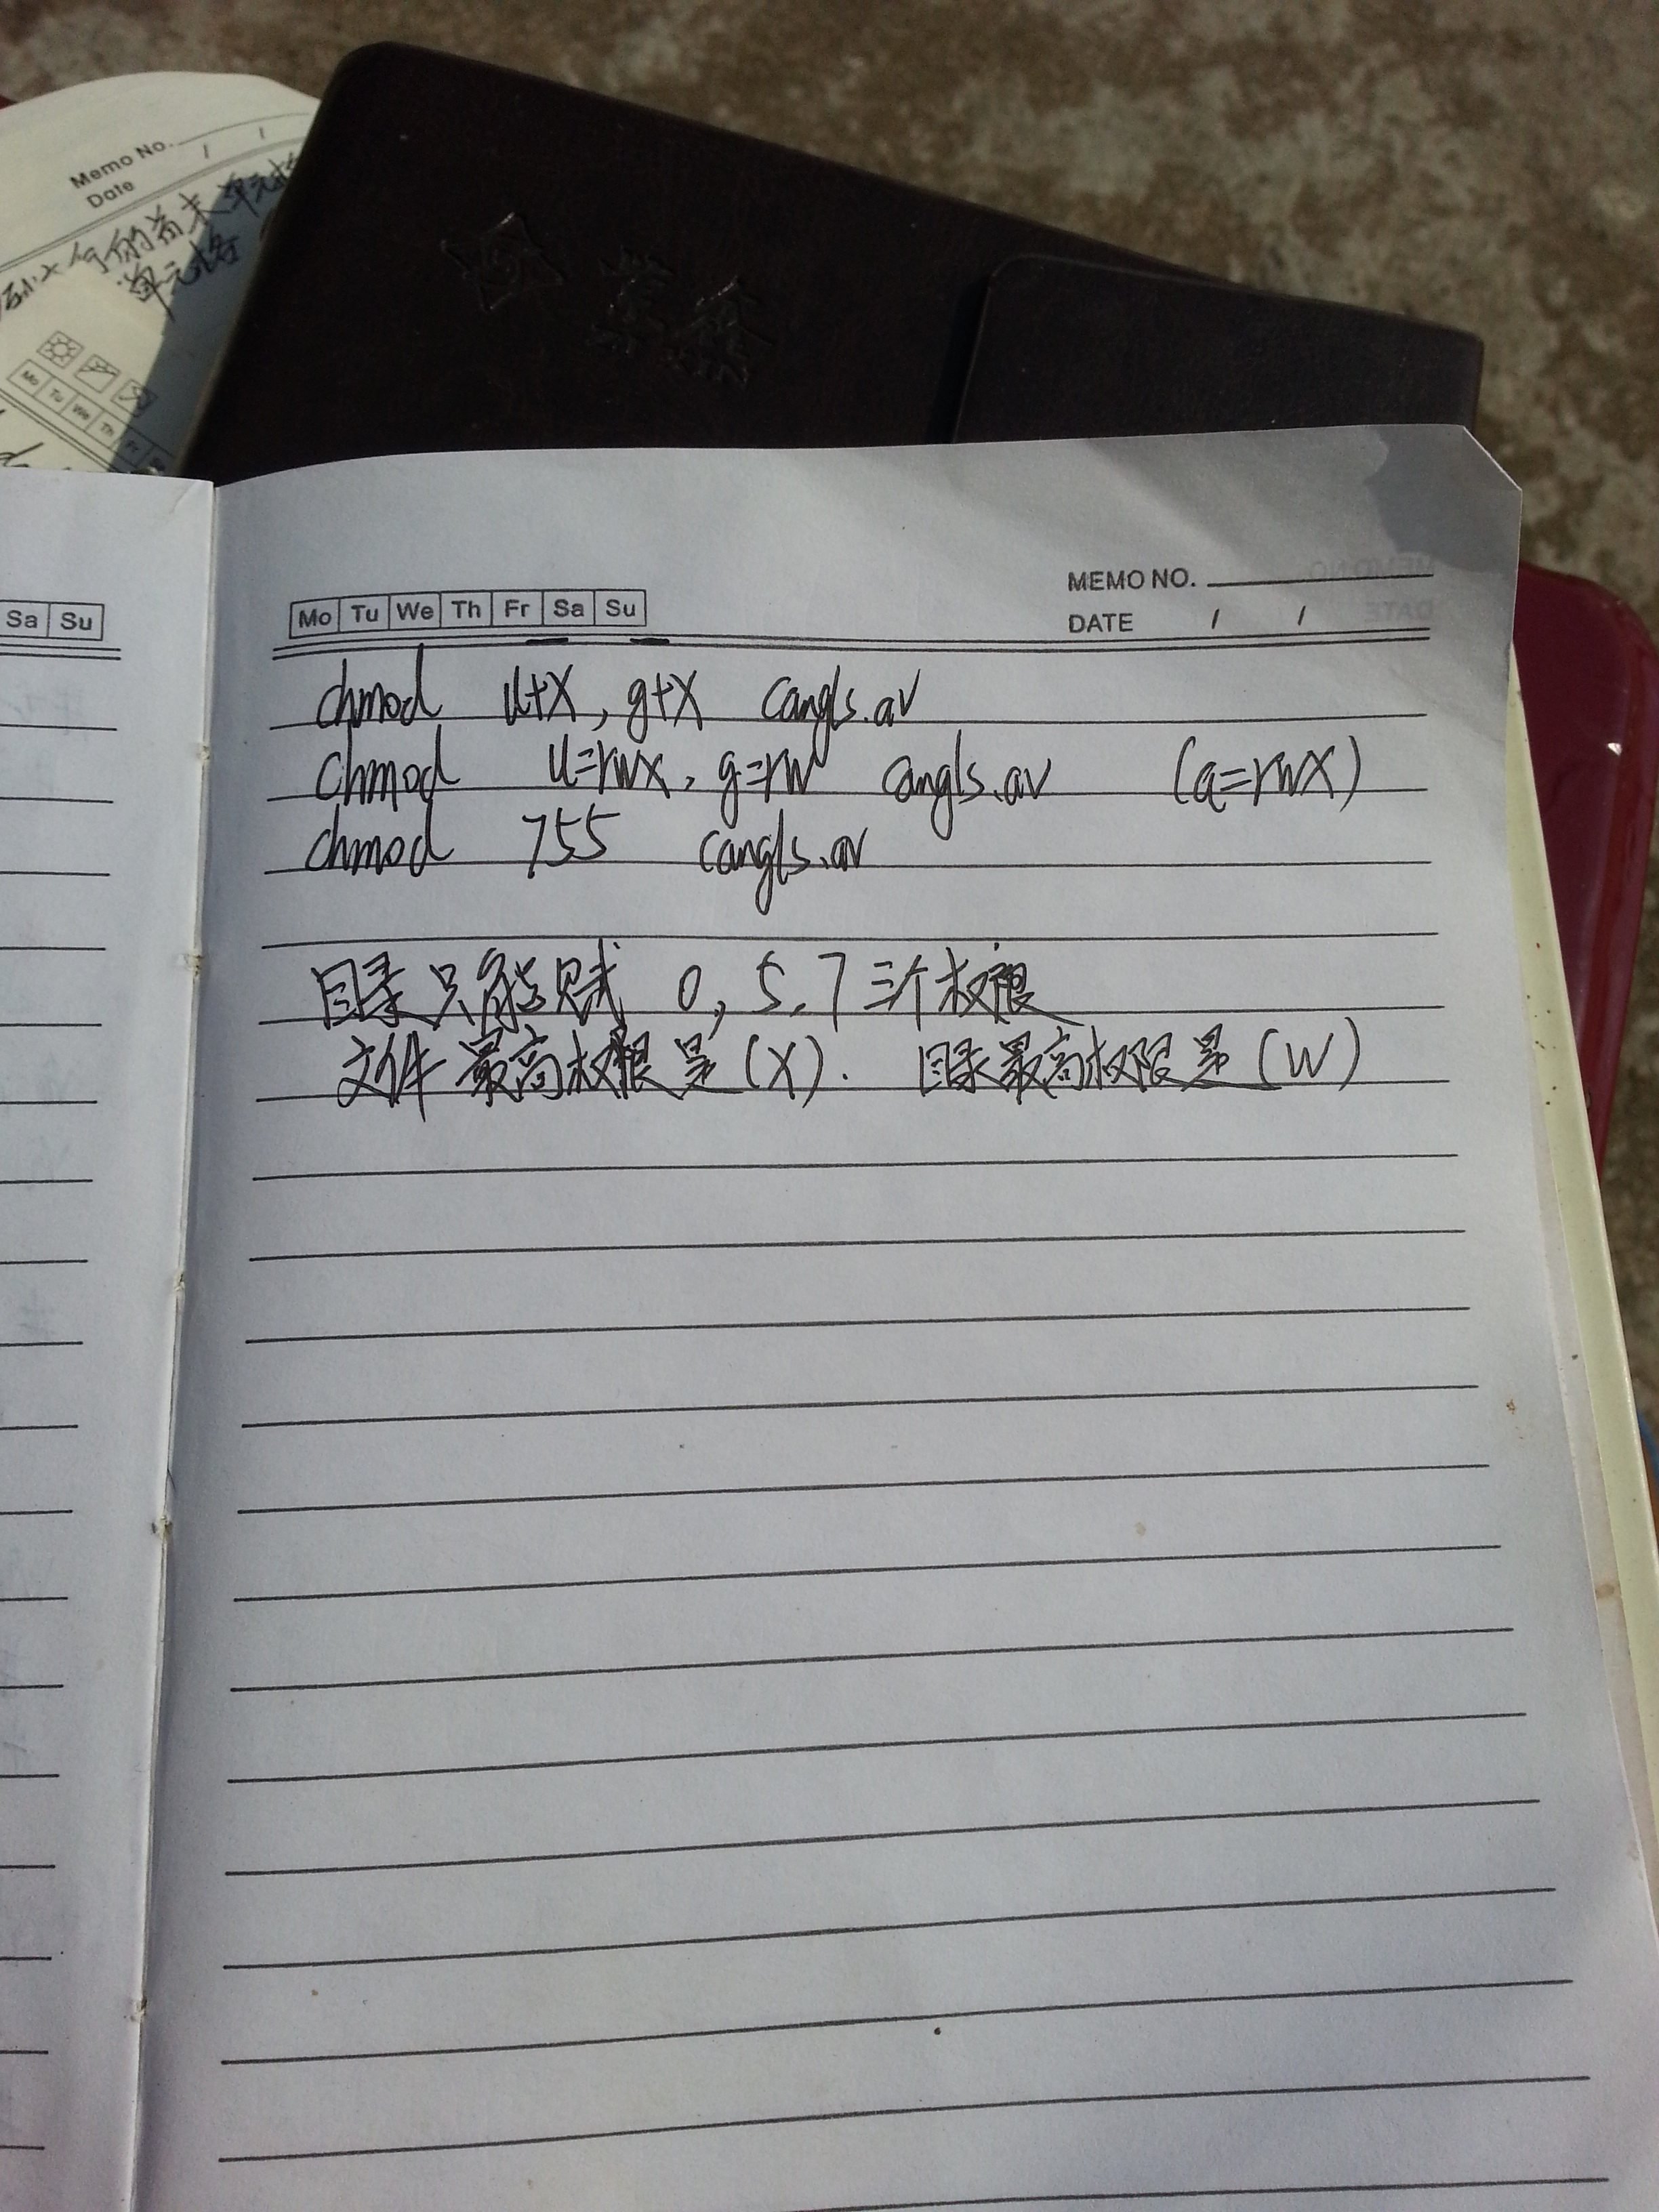 Memo No.
Date / /
单元格
Mo Tu We Th Fr
Sa Su
Mo Tu We Th Fr Sa Su
MEMO NO.
DATE / /
chmod u+x, g+x cangls.av
chmod u=rwx, g=rw cangls.av (a=rwx)
chmod 755 cangls.av
目录只能赋 0, 5, 7 三个权限
文件最高权限是(X). 目录最高权限是(W)